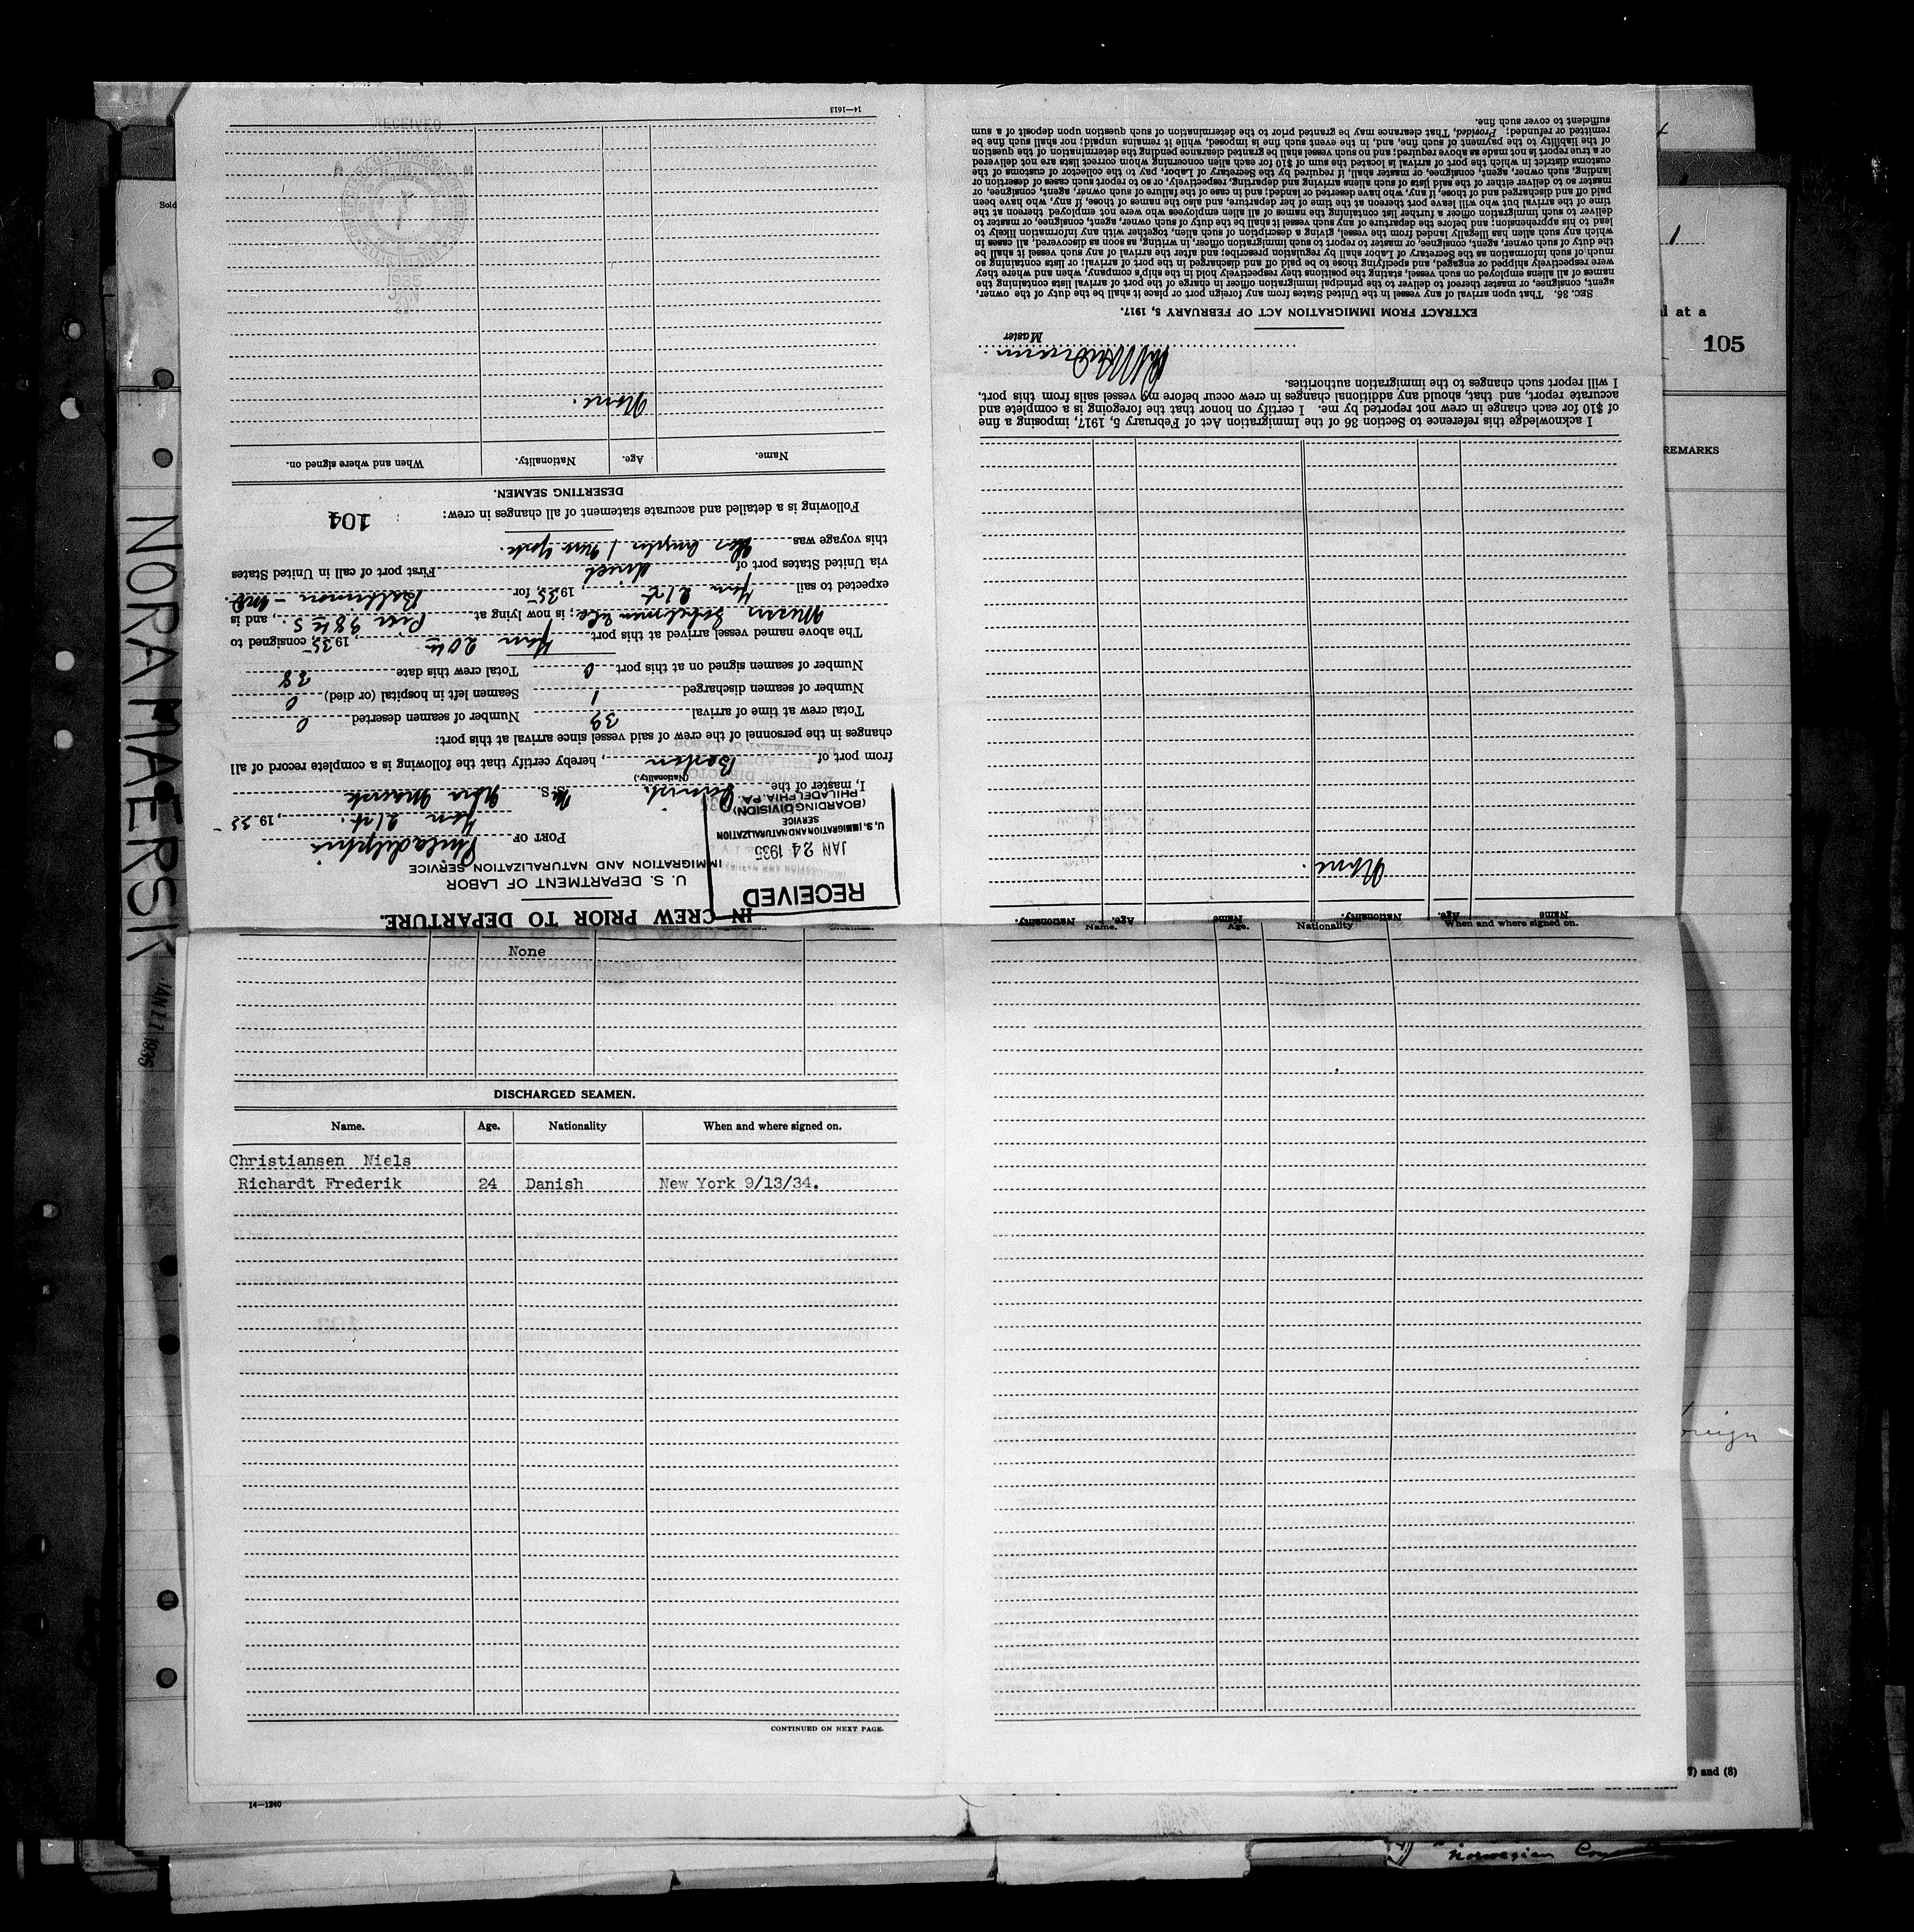 NORA MAERSK JAN 21 1935
Sold
IN CREW PRIOR TO DEPARTURE.
U. S. DEPARTMENT OF LABOR
IMMIGRATION AND NATURALIZATION SERVICE
RECEIVED
JAN 24 1935
U. S. IMMIGRATION AND NATURALIZATION
SERVICE
(BOARDING DIVISION)
PHILADELPHIA, PA.
PORT OF Philadelphia
Jan 21st., 1935
I, master of the Danish M. S. Nora Maersk
(Nationality.)
from port of Boston, hereby certify that the following is a complete record of all
changes in the personnel of the crew of said vessel since arrival at this port:
Total crew at time of arrival 39 Number of seamen deserted 0
Number of seamen discharged 1 Seamen left in hospital (or died) 0
Number of seamen signed on at this port 0 Total crew this date 38
The above named vessel arrived at this port Jan 20th, 1935 consigned to
; is now lying at Pier 98 S., and is
expected to sail Jan 21st, 1935, for Baltimore - Md.
via United States port of direct First port of call in United States
this voyage was Los Angeles / New York.
Following is a detailed and accurate statement of all changes in crew:
104
DESERTING SEAMEN.
Name. Age. Nationality. When and where signed on.
None.
RECEIVED
14—1613
Name Age. Nationality. Name Age. Nationality.
None.
I acknowledge this reference to Section 36 of the Immigration Act of February 5, 1917, imposing a fine
of $10 for each change in crew not reported by me. I certify on honor that the foregoing is a complete and
accurate report, and that, should any additional changes in crew occur before my vessel sails from this port,
I will report such changes to the immigration authorities.
Master
EXTRACT FROM IMMIGRATION ACT OF FEBRUARY 5, 1917.
SEC. 36. That upon arrival of any vessel in the United States from any foreign port or place it shall be the duty of the owner,
agent, consignee, or master thereof to deliver to the principal immigration officer in charge of the port of arrival lists containing the
names of all aliens employed on such vessel, stating the positions they respectively hold in the ship's company, when and where they
were respectively shipped or engaged, and specifying those to be paid off and discharged in the port of arrival; or lists containing so
much of such information as the Secretary of Labor shall by regulation prescribe; and after the arrival of any such vessel it shall be
the duty of such owner, agent, consignee, or master to report to such immigration officer, in writing, as soon as discovered, all cases in
which any such alien has illegally landed from the vessel, giving a description of such alien, together with any information likely to
lead to his apprehension; and before the departure of any such vessel it shall be the duty of such owner, agent, consignee, or master to
deliver to such immigration officer a further list containing the names of all alien employees who were not employed thereon at the
time of the arrival but who will leave port thereon at the time of her departure, and also the names of those, if any, who have been
paid off and discharged and of those, if any, who have deserted or landed; and in case of the failure of such owner, agent, consignee, or
master so to deliver either of the said lists of such aliens arriving and departing, respectively, or so to report such cases of desertion or
landing, such owner, agent, consignee, or master shall, if required by the Secretary of Labor, pay to the collector of customs of the
customs district in which the port of arrival is located the sum of $10 for each alien concerning whom correct lists are not delivered
or a true report is not made as above required; and no such vessel shall be granted clearance pending the determination of the question
of the liability to the payment of such fine, and, in the event such fine is imposed, while it remains unpaid; nor shall such fine be
remitted or refunded; Provided, That clearance may be granted prior to the determination of such question upon deposit of a sum
sufficient to cover such fine.
None
DISCHARGED SEAMEN.
Name. Age. Nationality When and where signed on.
Christiansen Niels
Richardt Frederik 24 Danish New York 9/13/34.
CONTINUED ON NEXT PAGE.
14—1240
Name. Age. Nationality When and where signed on.
1
l at a
105
REMARKS
and (8)
Norwegian